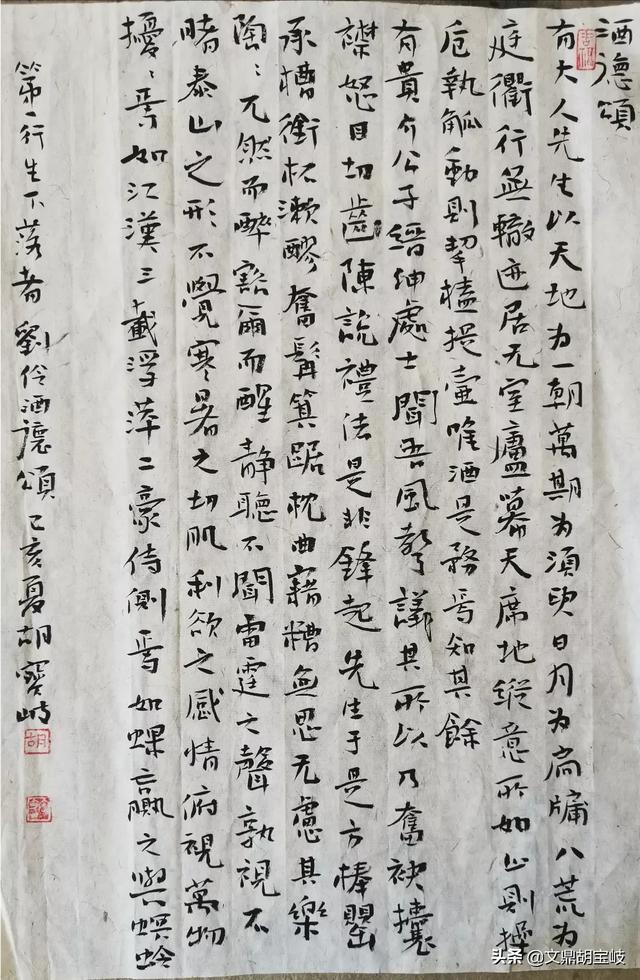 酒德頌
有大人先生以天地为一朝萬期为須臾日月为扃牖八荒为
庭衢行無轍迹居无室廬幕天席地縱意所如止則操
卮執觚動則挈榼提壺唯酒是務焉知其餘
有貴介公子縉紳處士聞吾風聲議其所以乃奮袂攘
襟怒目切齒陳說禮法是非鋒起先生于是方棒罌
承槽銜杯漱醪奮髯箕踞枕曲藉糟無思无慮其樂
陶〻兀然而醉豁爾而醒静聽不聞雷霆之聲孰視不
睹泰山之形不覺寒暑之切肌利欲之感情俯視萬物
擾〻焉如江漢三載浮萍二豪侍側焉如蜾蠃之與螟蛉
第一行生下落者劉伶酒德頌己亥夏胡寶岐
胡
头条 @文鼎胡宝岐